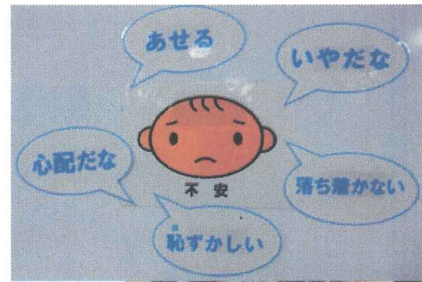 あせる
いやだな
心配だな
不安
落ち着かない
恥ずかしい